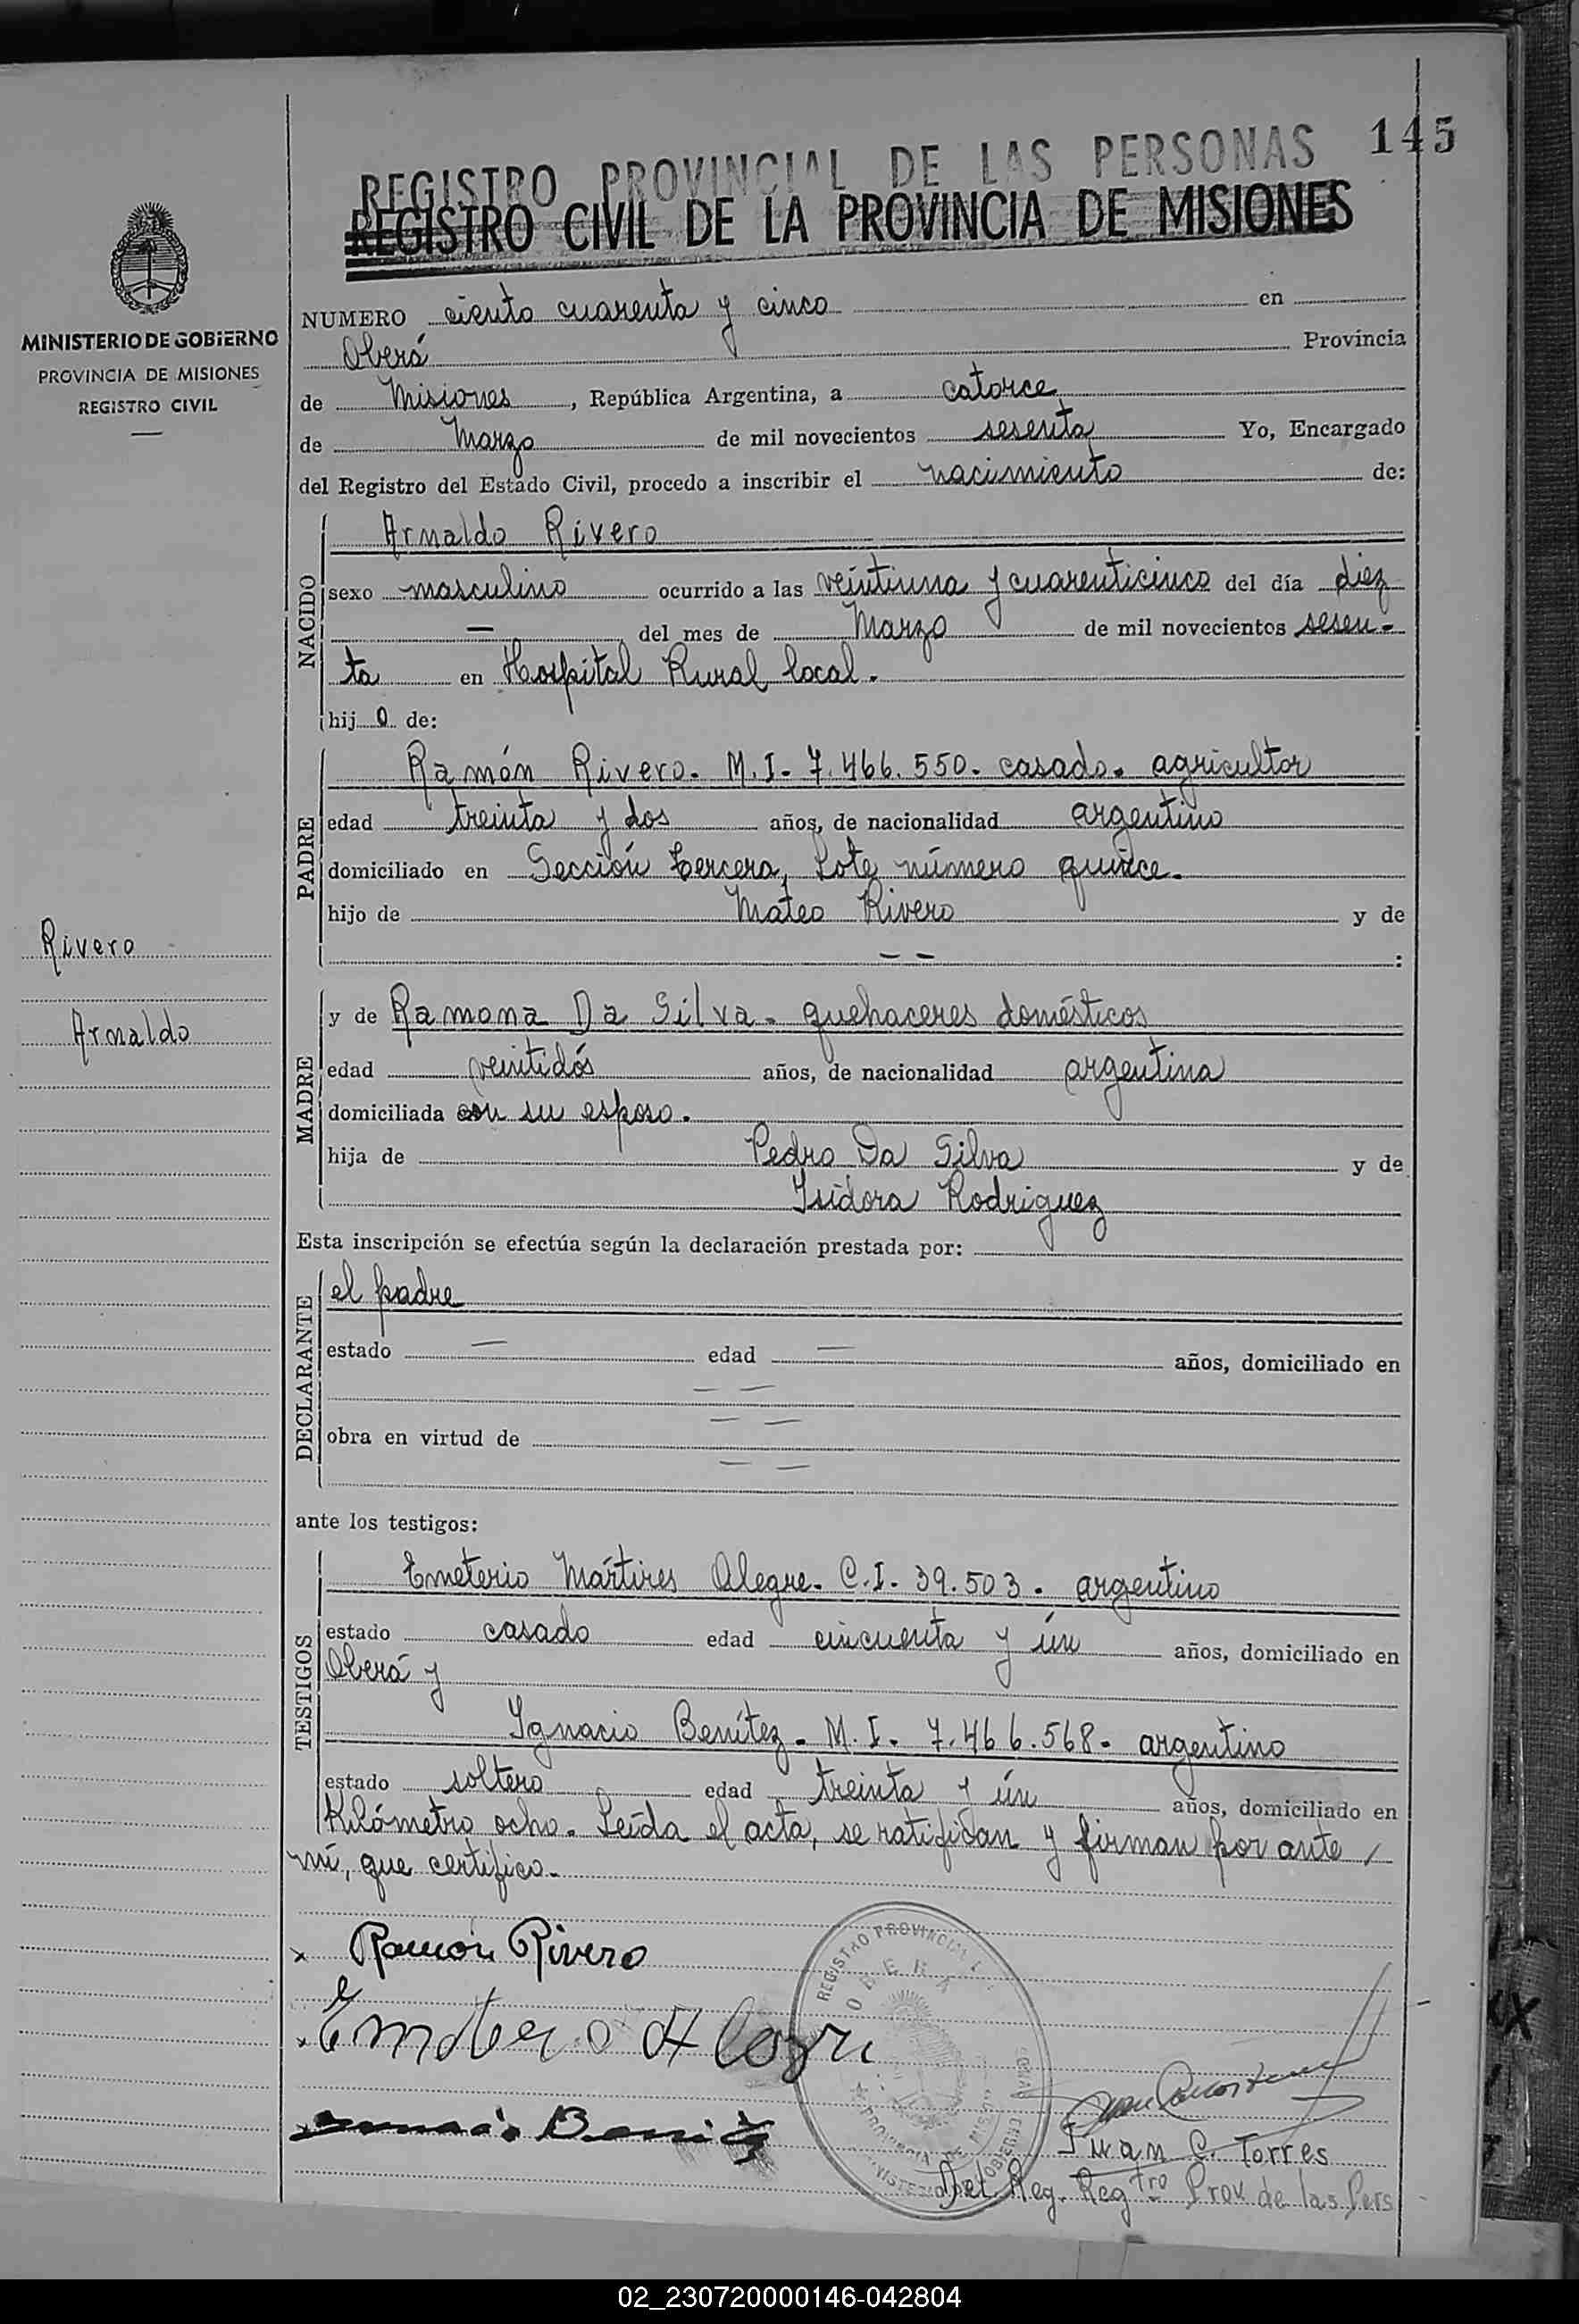 145
REGISTRO PROVINCIAL DE LAS PERSONAS
REGISTRO CIVIL DE LA PROVINCIA DE MISIONES
MINISTERIO DE GOBIERNO
PROVINCIA DE MISIONES
REGISTRO CIVIL
Rivero
Arnaldo
NUMERO ciento cuarenta y cinco en
Oberá Provincia
de Misiones, República Argentina, a catorce
de Marzo de mil novecientos sesenta Yo, Encargado
del Registro del Estado Civil, procedo a inscribir el nacimiento de:
NACIDO
Arnaldo Rivero
sexo masculino ocurrido a las veintiuna y cuarenticinco del día diez
— del mes de Marzo de mil novecientos sesen-
ta en Hospital Rural local.
hijo de:
PADRE
Ramón Rivero. M.I- 7.466.550. casado. agricultor
edad treinta y dos años, de nacionalidad argentino
domiciliado en Sección tercera, Lote número quince.
hijo de Mateo Rivero y de
— — :
MADRE
y de Ramona Da Silva. quehaceres domésticos
edad veintidós años, de nacionalidad argentina
domiciliada con su esposo.
hija de Pedro Da Silva y de
Isidora Rodriguez
Esta inscripción se efectúa según la declaración prestada por:
DECLARANTE
el padre
estado — edad — años, domiciliado en
— —
— —
obra en virtud de
— —
ante los testigos:
TESTIGOS
Emeterio Mártires Alegre. C.I- 39.503. argentino
estado casado edad cincuenta y ún años, domiciliado en
Oberá y
Ignacio Benítez. M.I. 7.466.568. argentino
estado soltero edad treinta y ún años, domiciliado en
Kilómetro ocho. Leída el acta, se ratifican y firman por ante
mí, que certifico.
x Ramón Rivero
REGISTRO PROVINCIAL
OBERA
PROVINCIA DE MIS
Juan C. Torres
Del. Reg. Regtro Prov. de las Pers
02_230720000146-042804